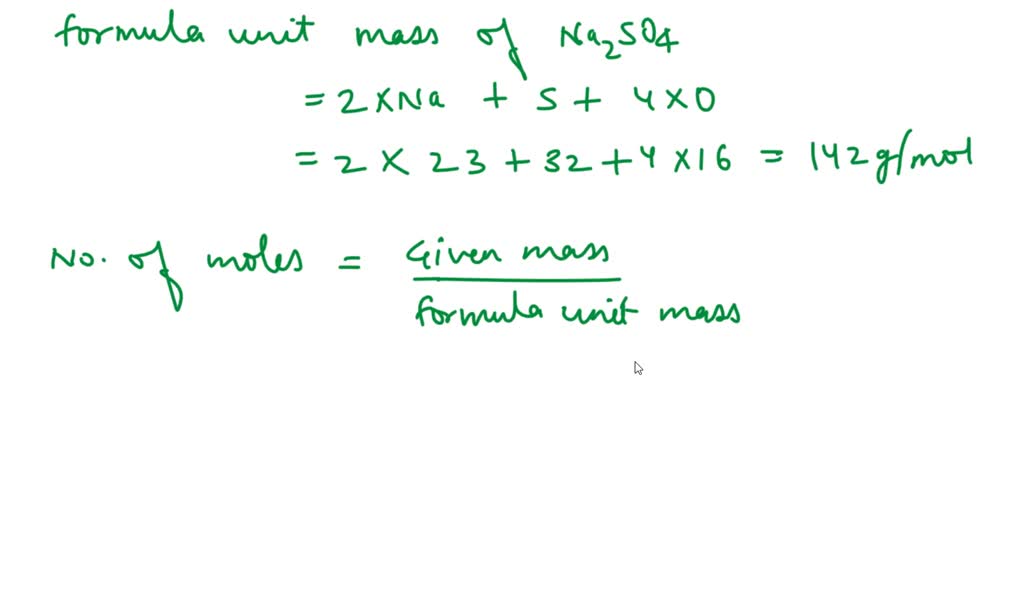 formula unit mass of Na₂SO₄
= 2 × Na + S + 4 × O
= 2 × 23 + 32 + 4 × 16 = 142 g/mol
No. of moles = Given mass
formula unit mass